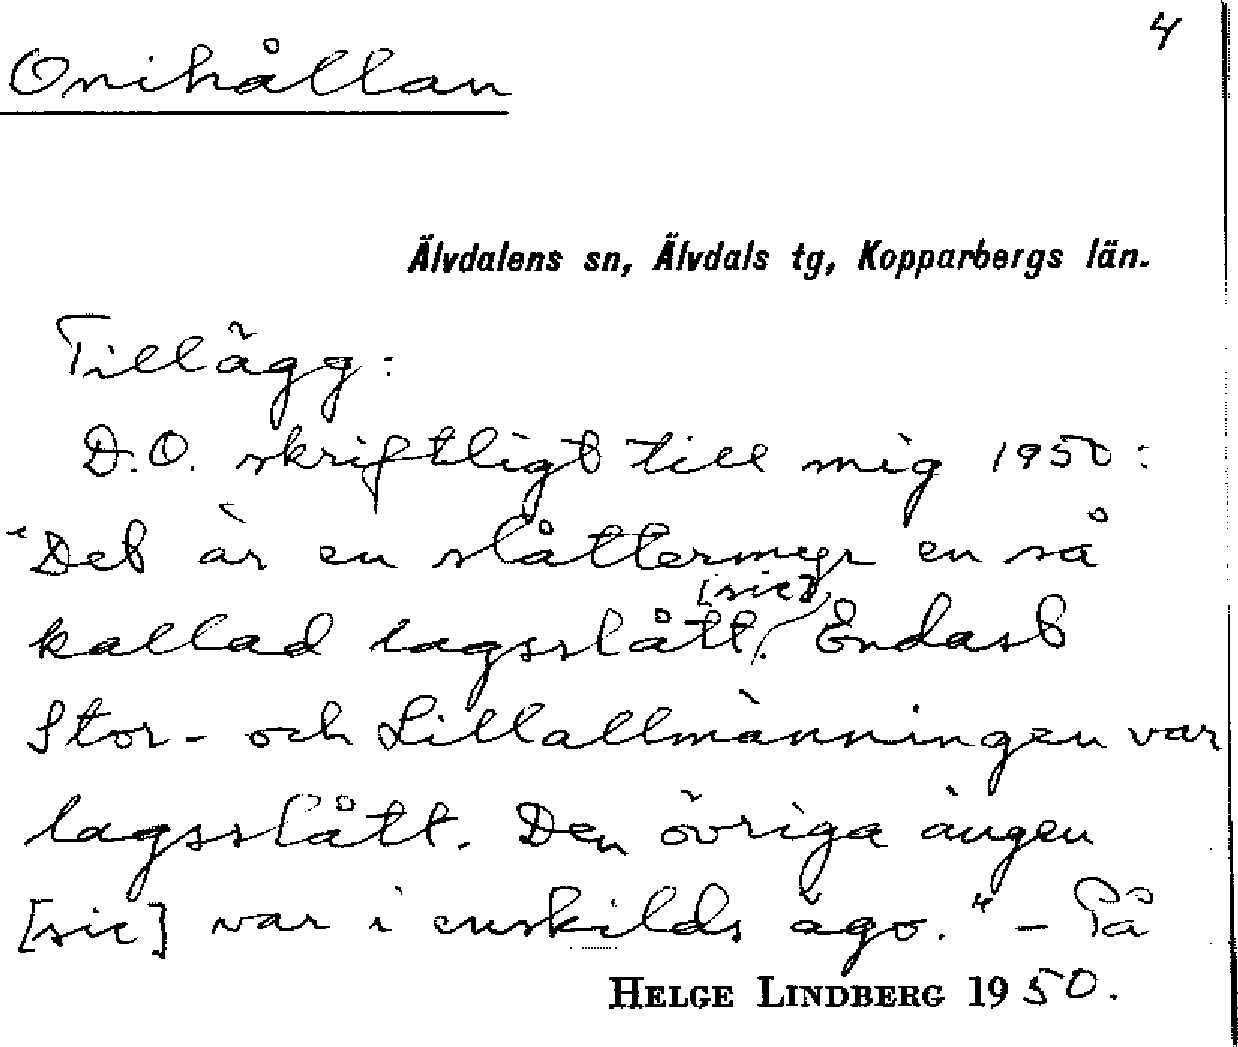 4
Onihållan
Älvdalens sn, Älvdals tg, Kopparbergs län.
Tillägg:
D.O. skriftligt till mig 1950:
"Det är en slåttermyr en så
[sic]
kallad lagsslått. Endast
Stor- och Lillallmänningen var
lagsslått. Den övriga ängen
[sic] var i enskilds ägo." - På
HELGE LINDBERG 1950.